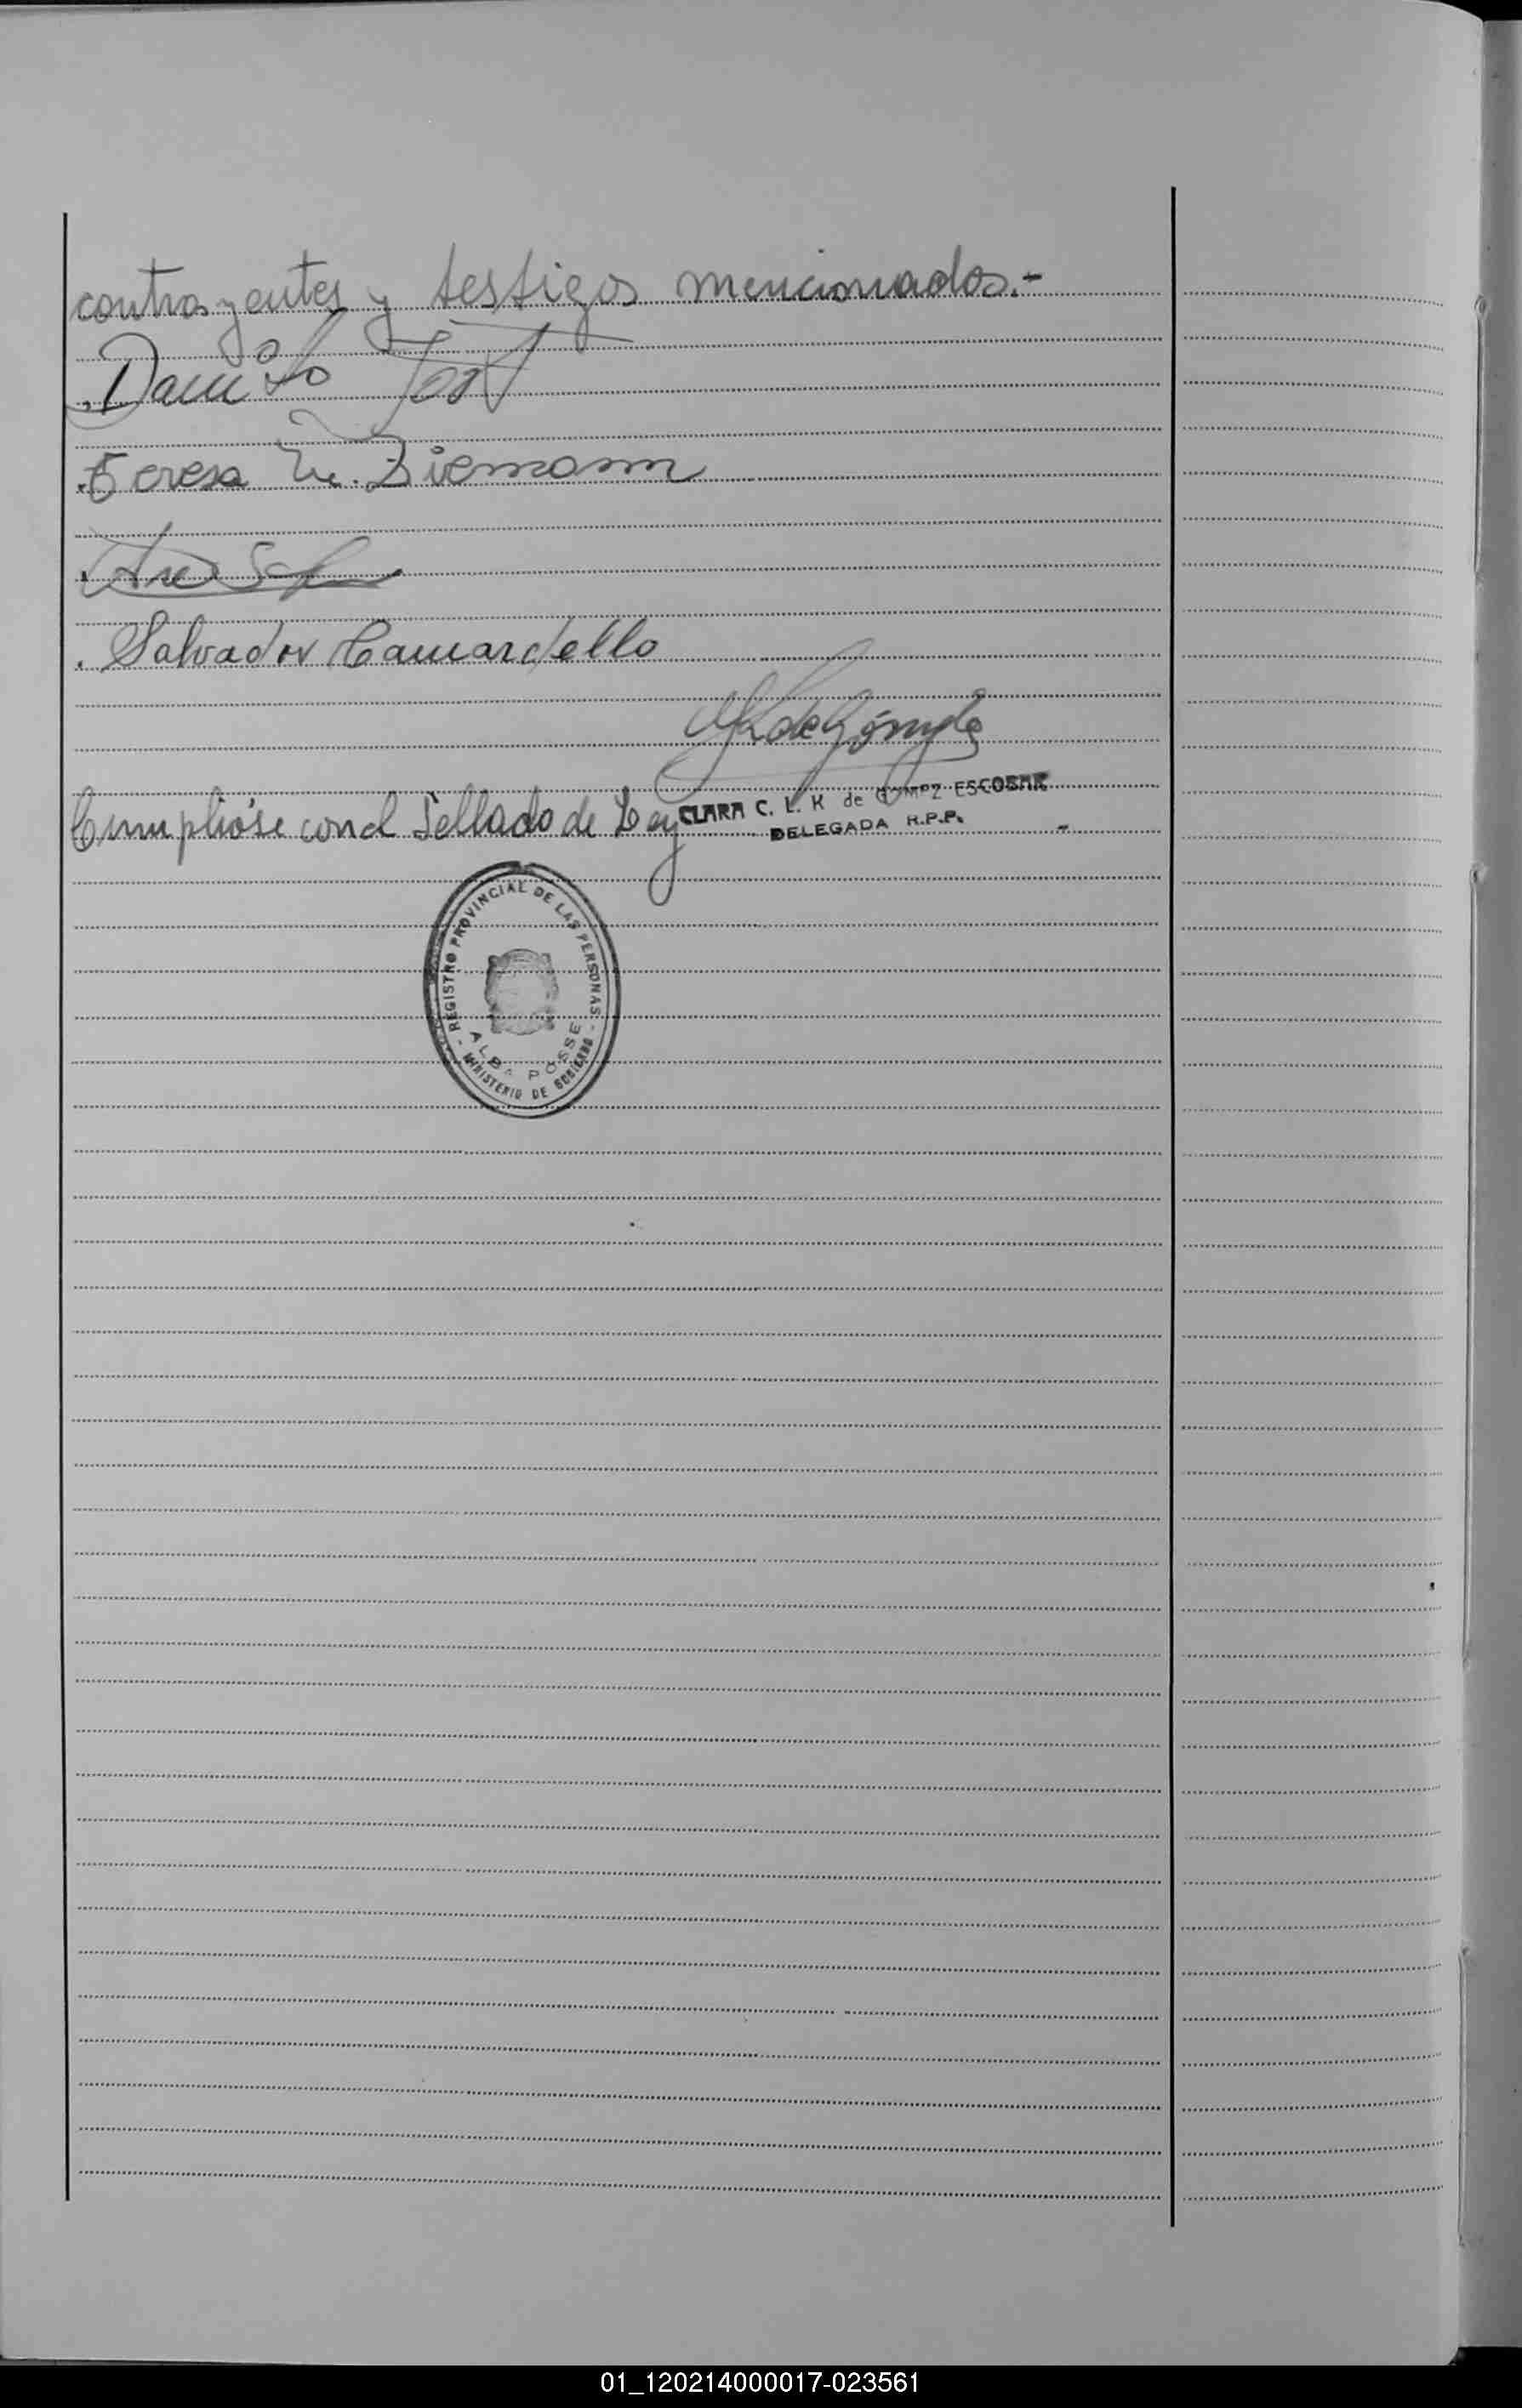 contrayentes y testigos mencionados.-
Danilo Jost
Teresa M. Ziemann
Salvador Camardello
Cumplióse con el Sellado de Ley
CLARA C. L. K de GOMEZ ESCOBAR
DELEGADA R.P.P.
- REGISTRO PROVINCIAL DE LAS PERSONAS -
ALBA POSSE
MINISTERIO DE GOBIERNO
01_120214000017-023561